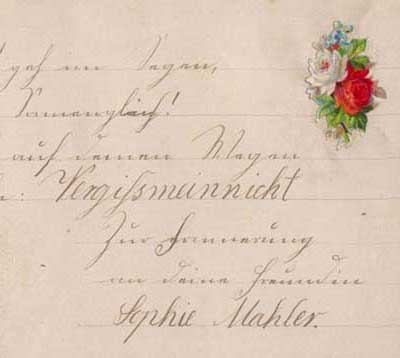 geh im Segen,
Sonnengleich!
auf deinen Wegen
: Vergißmeinnicht
Zur Erinnerung
an deine Freundin
Sophie Mahler.